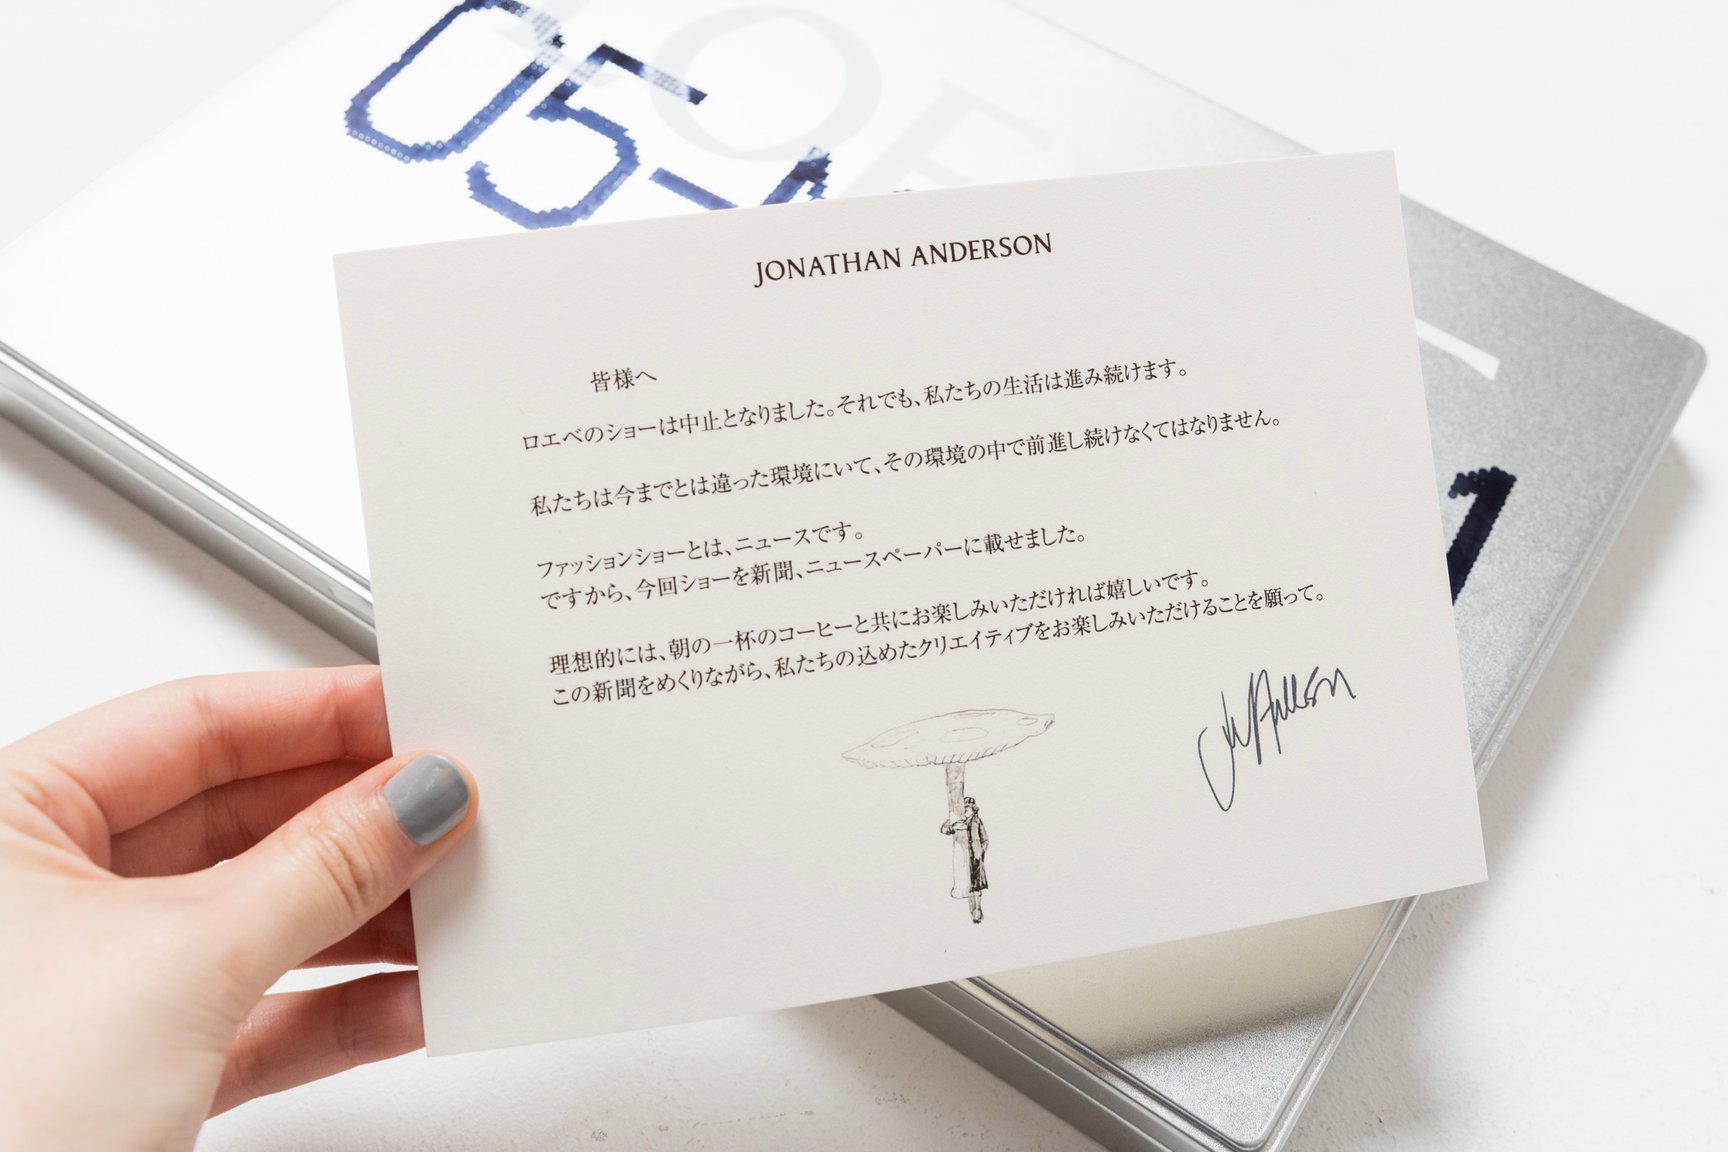 05-
LOEW
1
JONATHAN ANDERSON
皆様へ
ロエベのショーは中止となりました。それでも、私たちの生活は進み続けます。
私たちは今までとは違った環境にいて、その環境の中で前進し続けなくてはなりません。
ファッションショーとは、ニュースです。
ですから、今回ショーを新聞、ニュースペーパーに載せました。
理想的には、朝の一杯のコーヒーと共にお楽しみいただければ嬉しいです。
この新聞をめくりながら、私たちの込めたクリエイティブをお楽しみいただけることを願って。